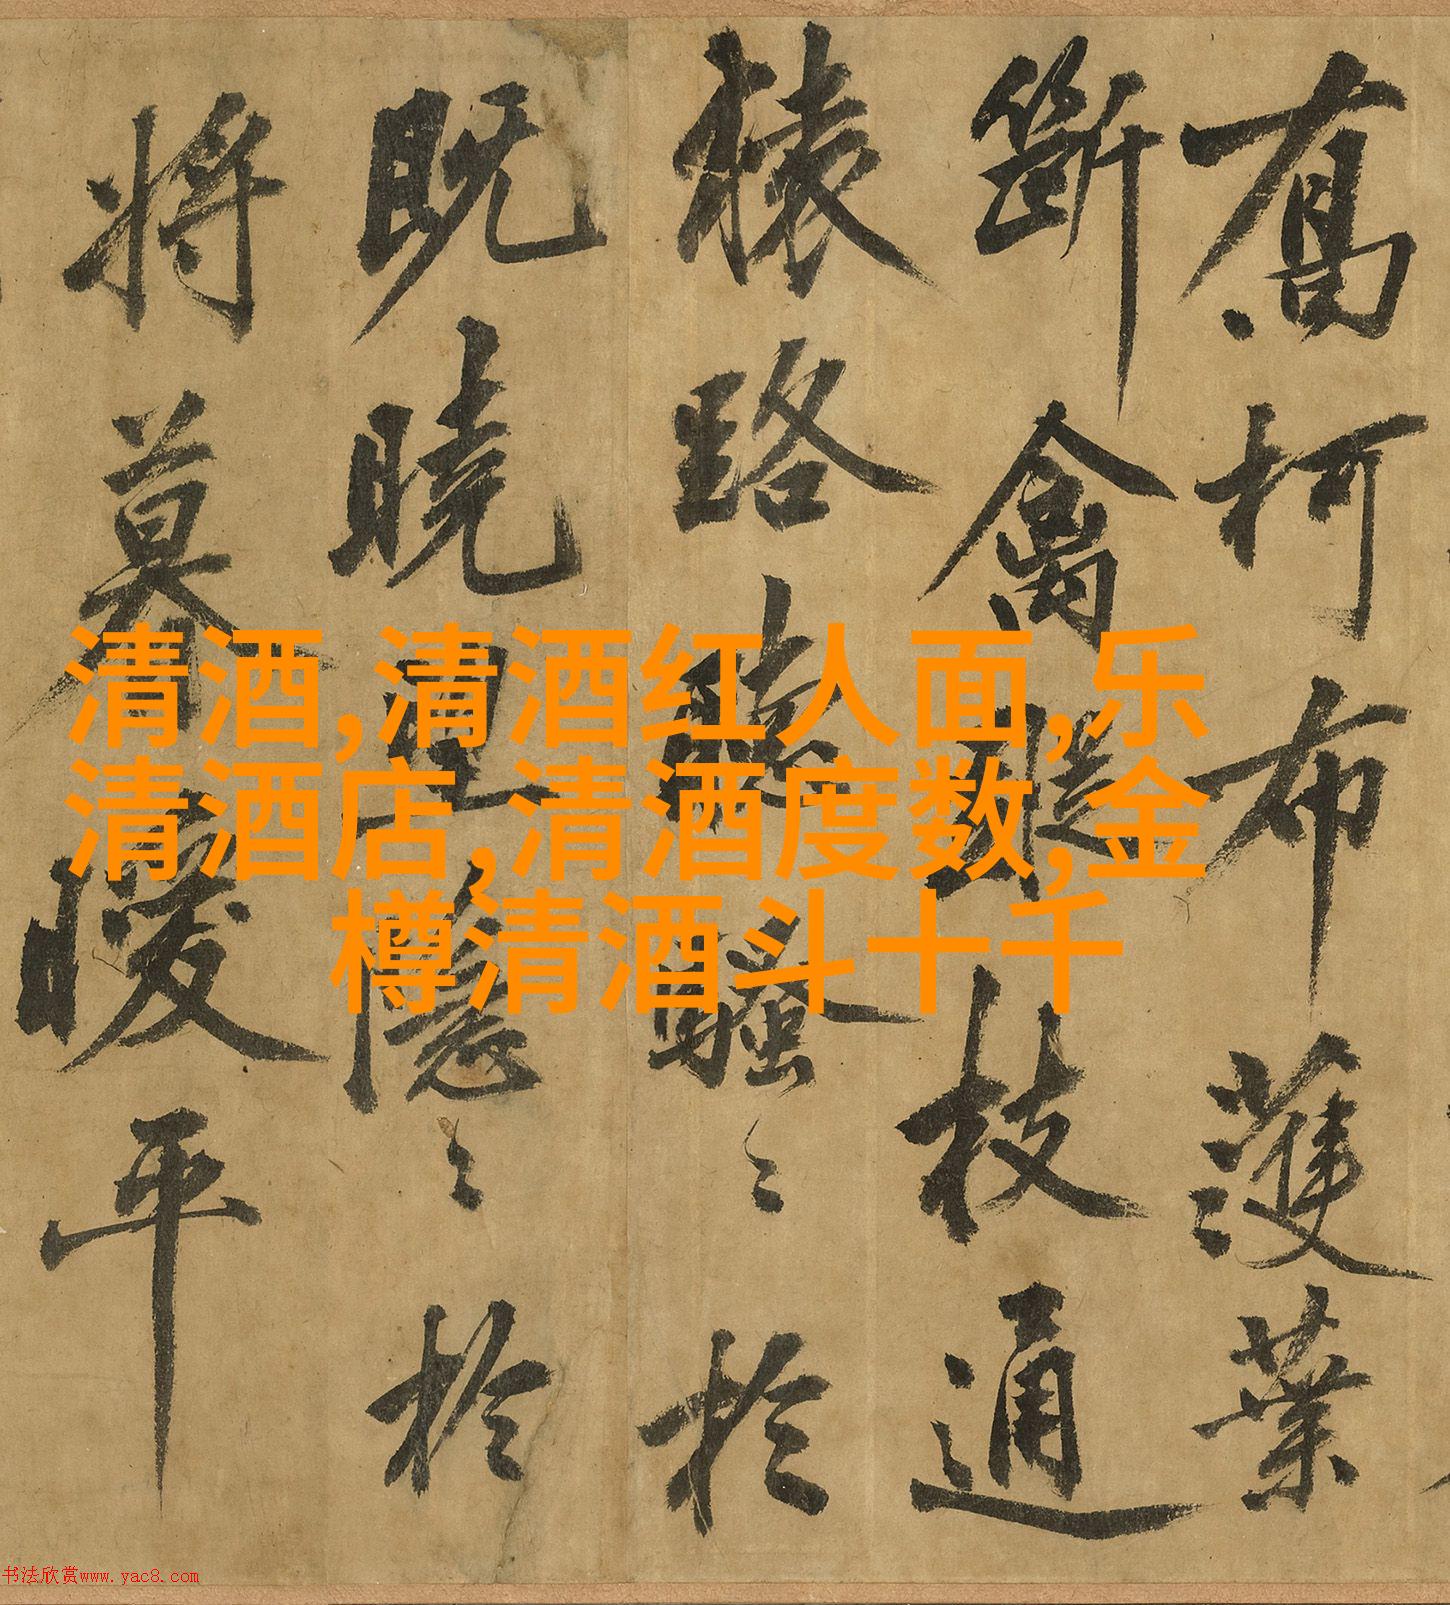 喬柯布濩葉
斷禽蹤枝通
猿路聽騷〻於
既曉望隱〻於
將暮曖平
清酒,清酒红人面,乐
清酒店,清酒度数,金
樽清酒斗十千
书法欣赏www.yac8.com